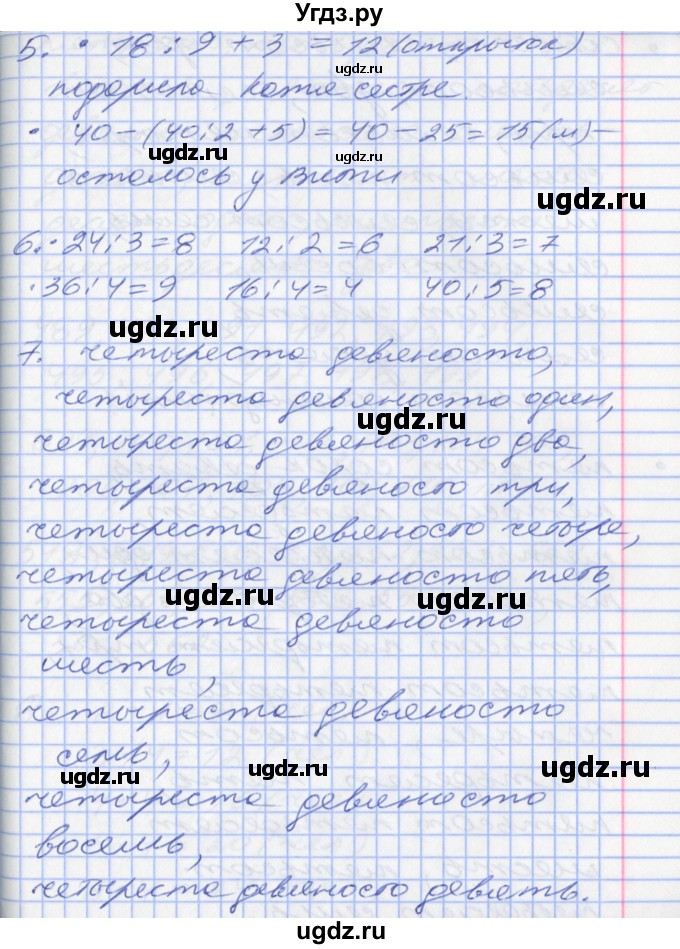 Угдз.ру
5. · 18 : 9 + 3 = 12 (открыток)
ugdz.ru
подарила Катя сестре.
· 40 - (40 : 2 + 5) = 40 - 25 = 15 (м) -
ugdz.ru ugdz.ru
осталось у Вити
ugdz.ru
6. · 24 : 3 = 8 12 : 2 = 6 21 : 3 = 7
· 36 : 4 = 9 16 : 4 = 4 40 : 5 = 8
ugdz.ru
7. четыреста девяносто,
четыреста девяносто один,
ugdz.ru
четыреста девяносто два,
четыреста девяносто три,
четыреста девяносто четыре,
четыреста девяносто пять,
ugdz.ru ugdz.ru
четыреста девяносто
шесть,
четыреста девяносто
семь,
ugdz.ru ugdz.ru
четыреста девяносто
восемь,
четыреста девяносто девять.
ugdz.ru ugdz.ru